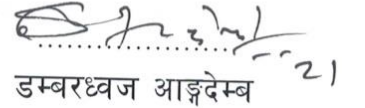 डम्बरध्वज आङ्गदेम्बे
21